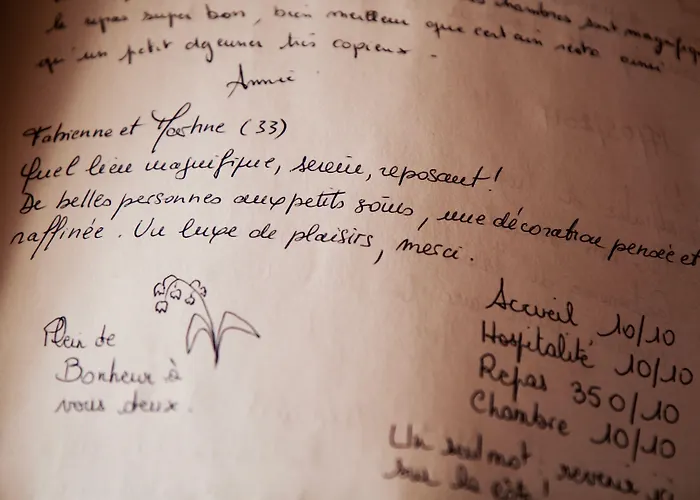 chambres sont magnifiqu
le repas super bon, bien meilleur que certain resto ainsi
qu'un petit dejeuner très copieux.
Annie
Fabienne et Martine (33)
Quel lieu magnifique, serein, reposant!
De belles personnes aux petits soins, une décoration pensée et
raffinée. Un luxe de plaisirs, merci.
Plein de
Bonheur à
vous deux.
Accueil 10/10
Hospitalité 10/10
Repas 350/10
Chambre 10/10
Un seul mot, revenir